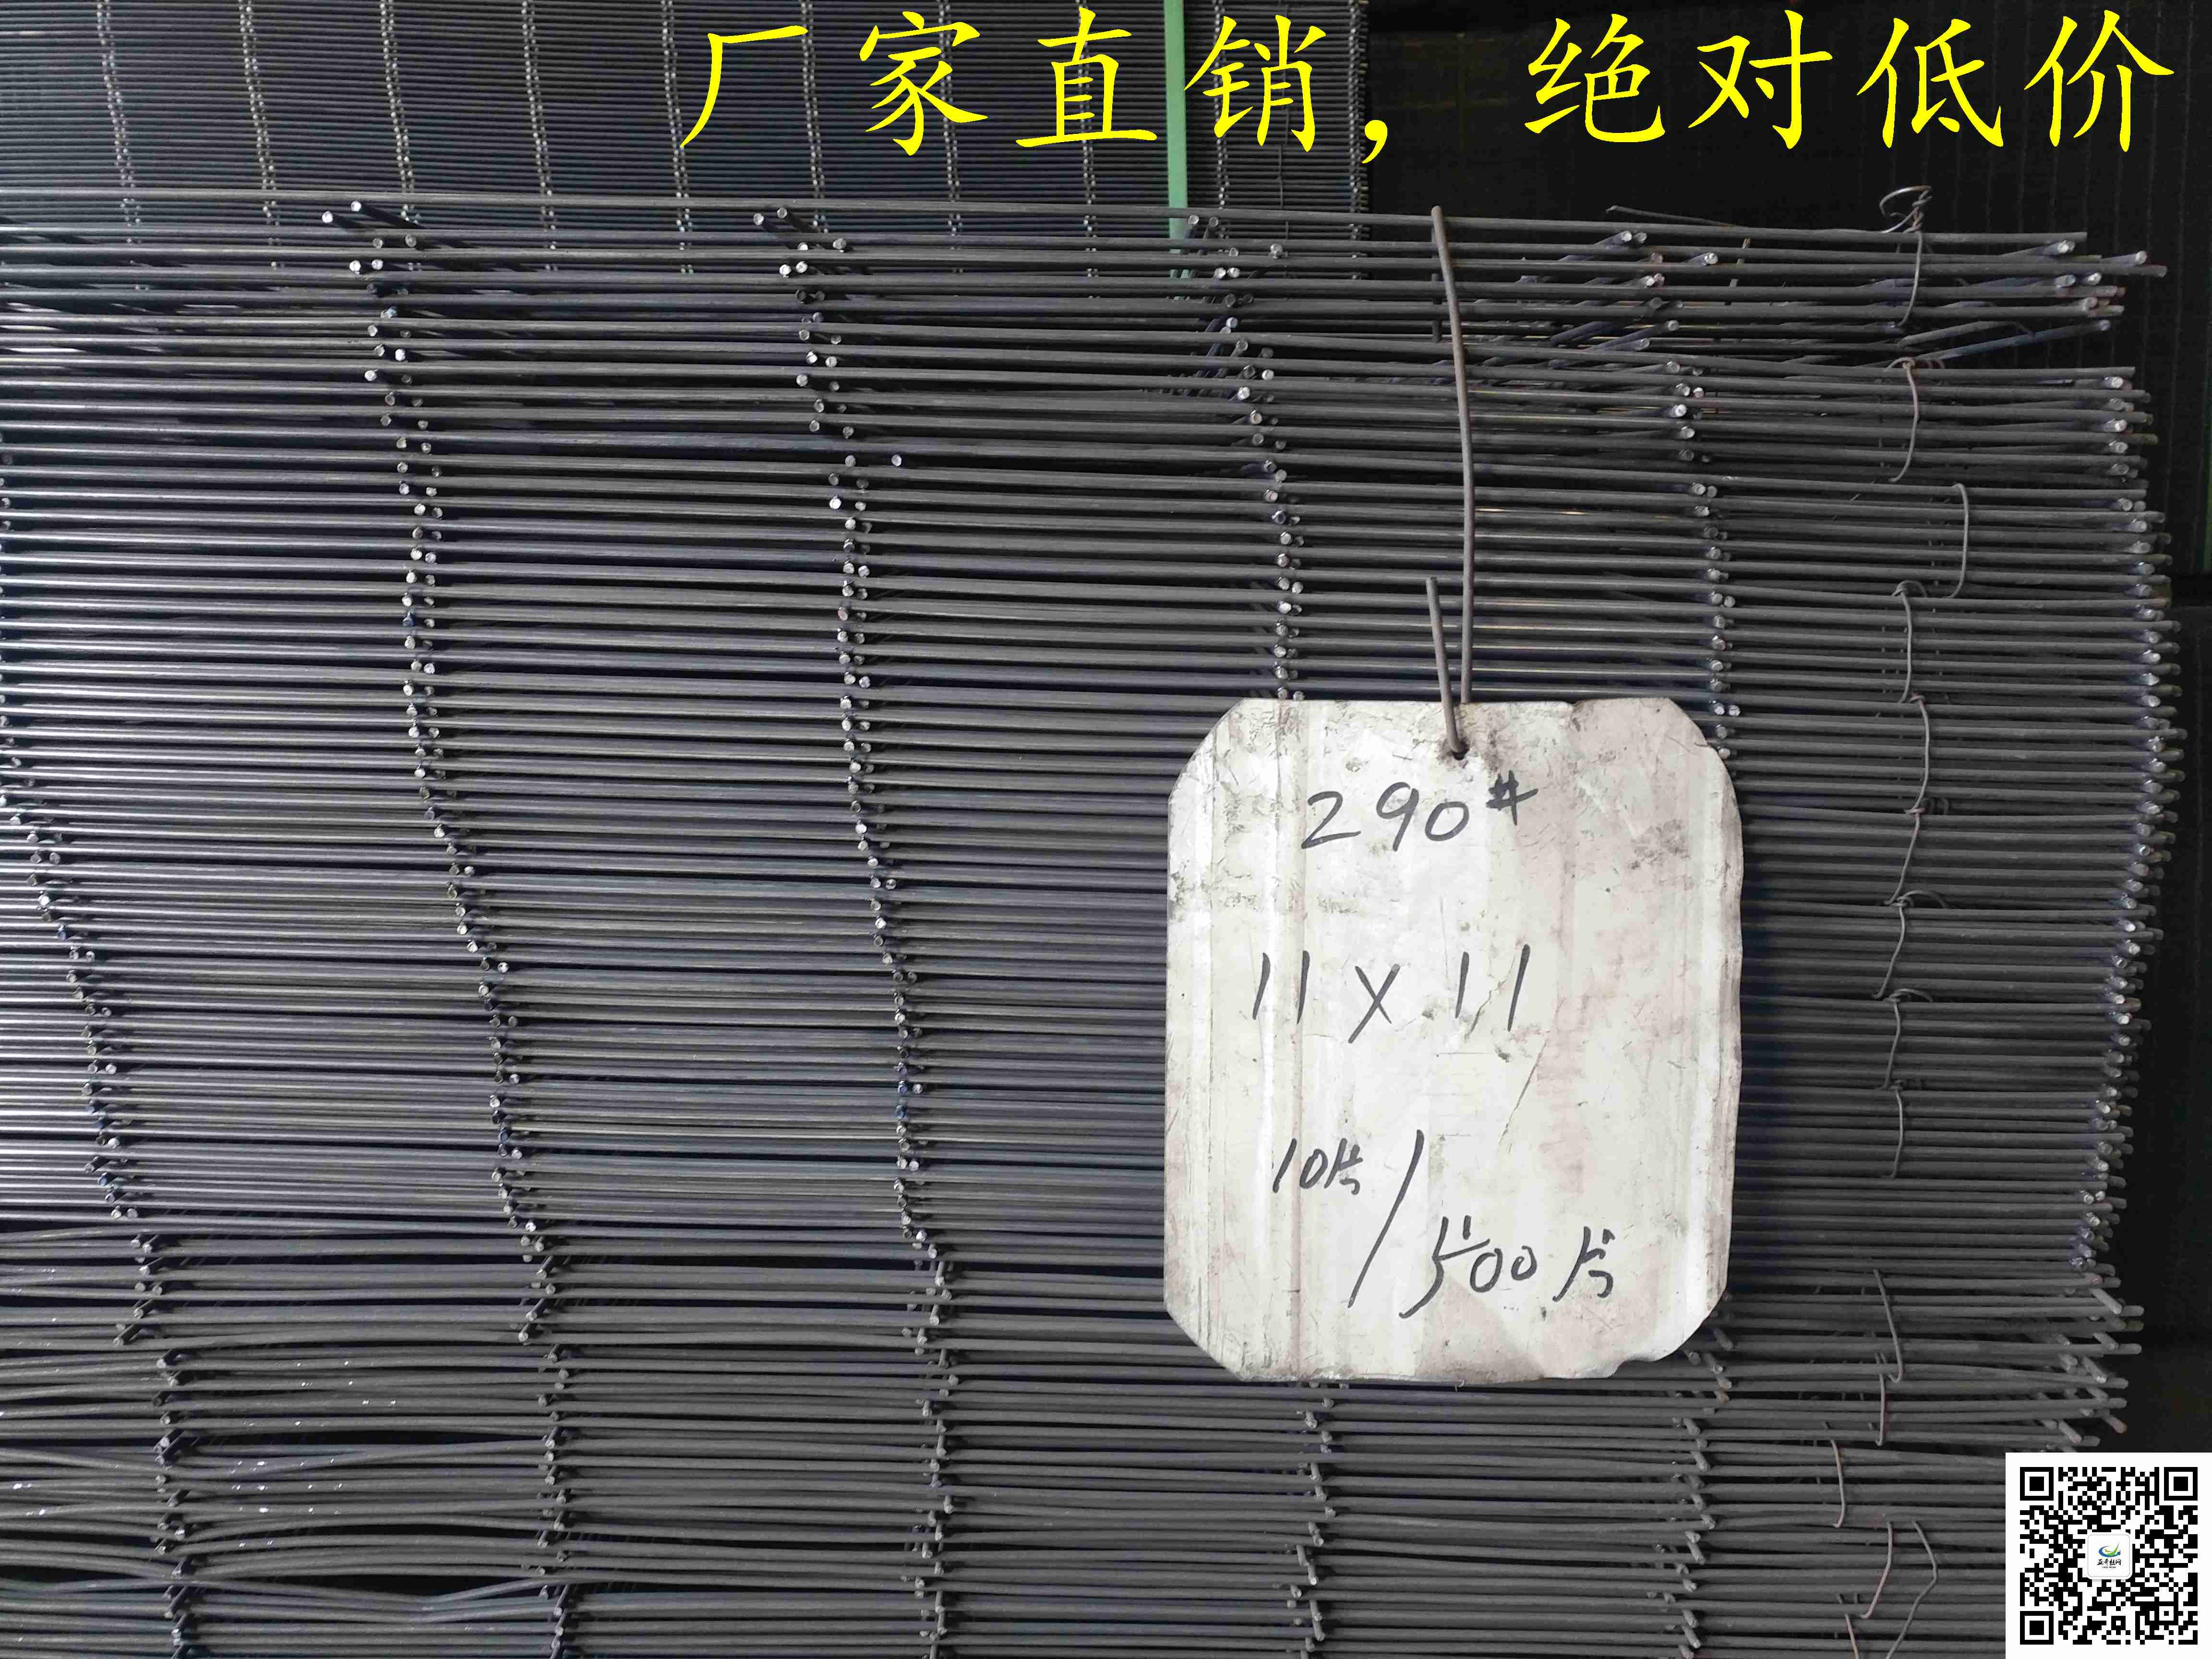 厂家直销，绝对低价
290#
11×11
10片/500片